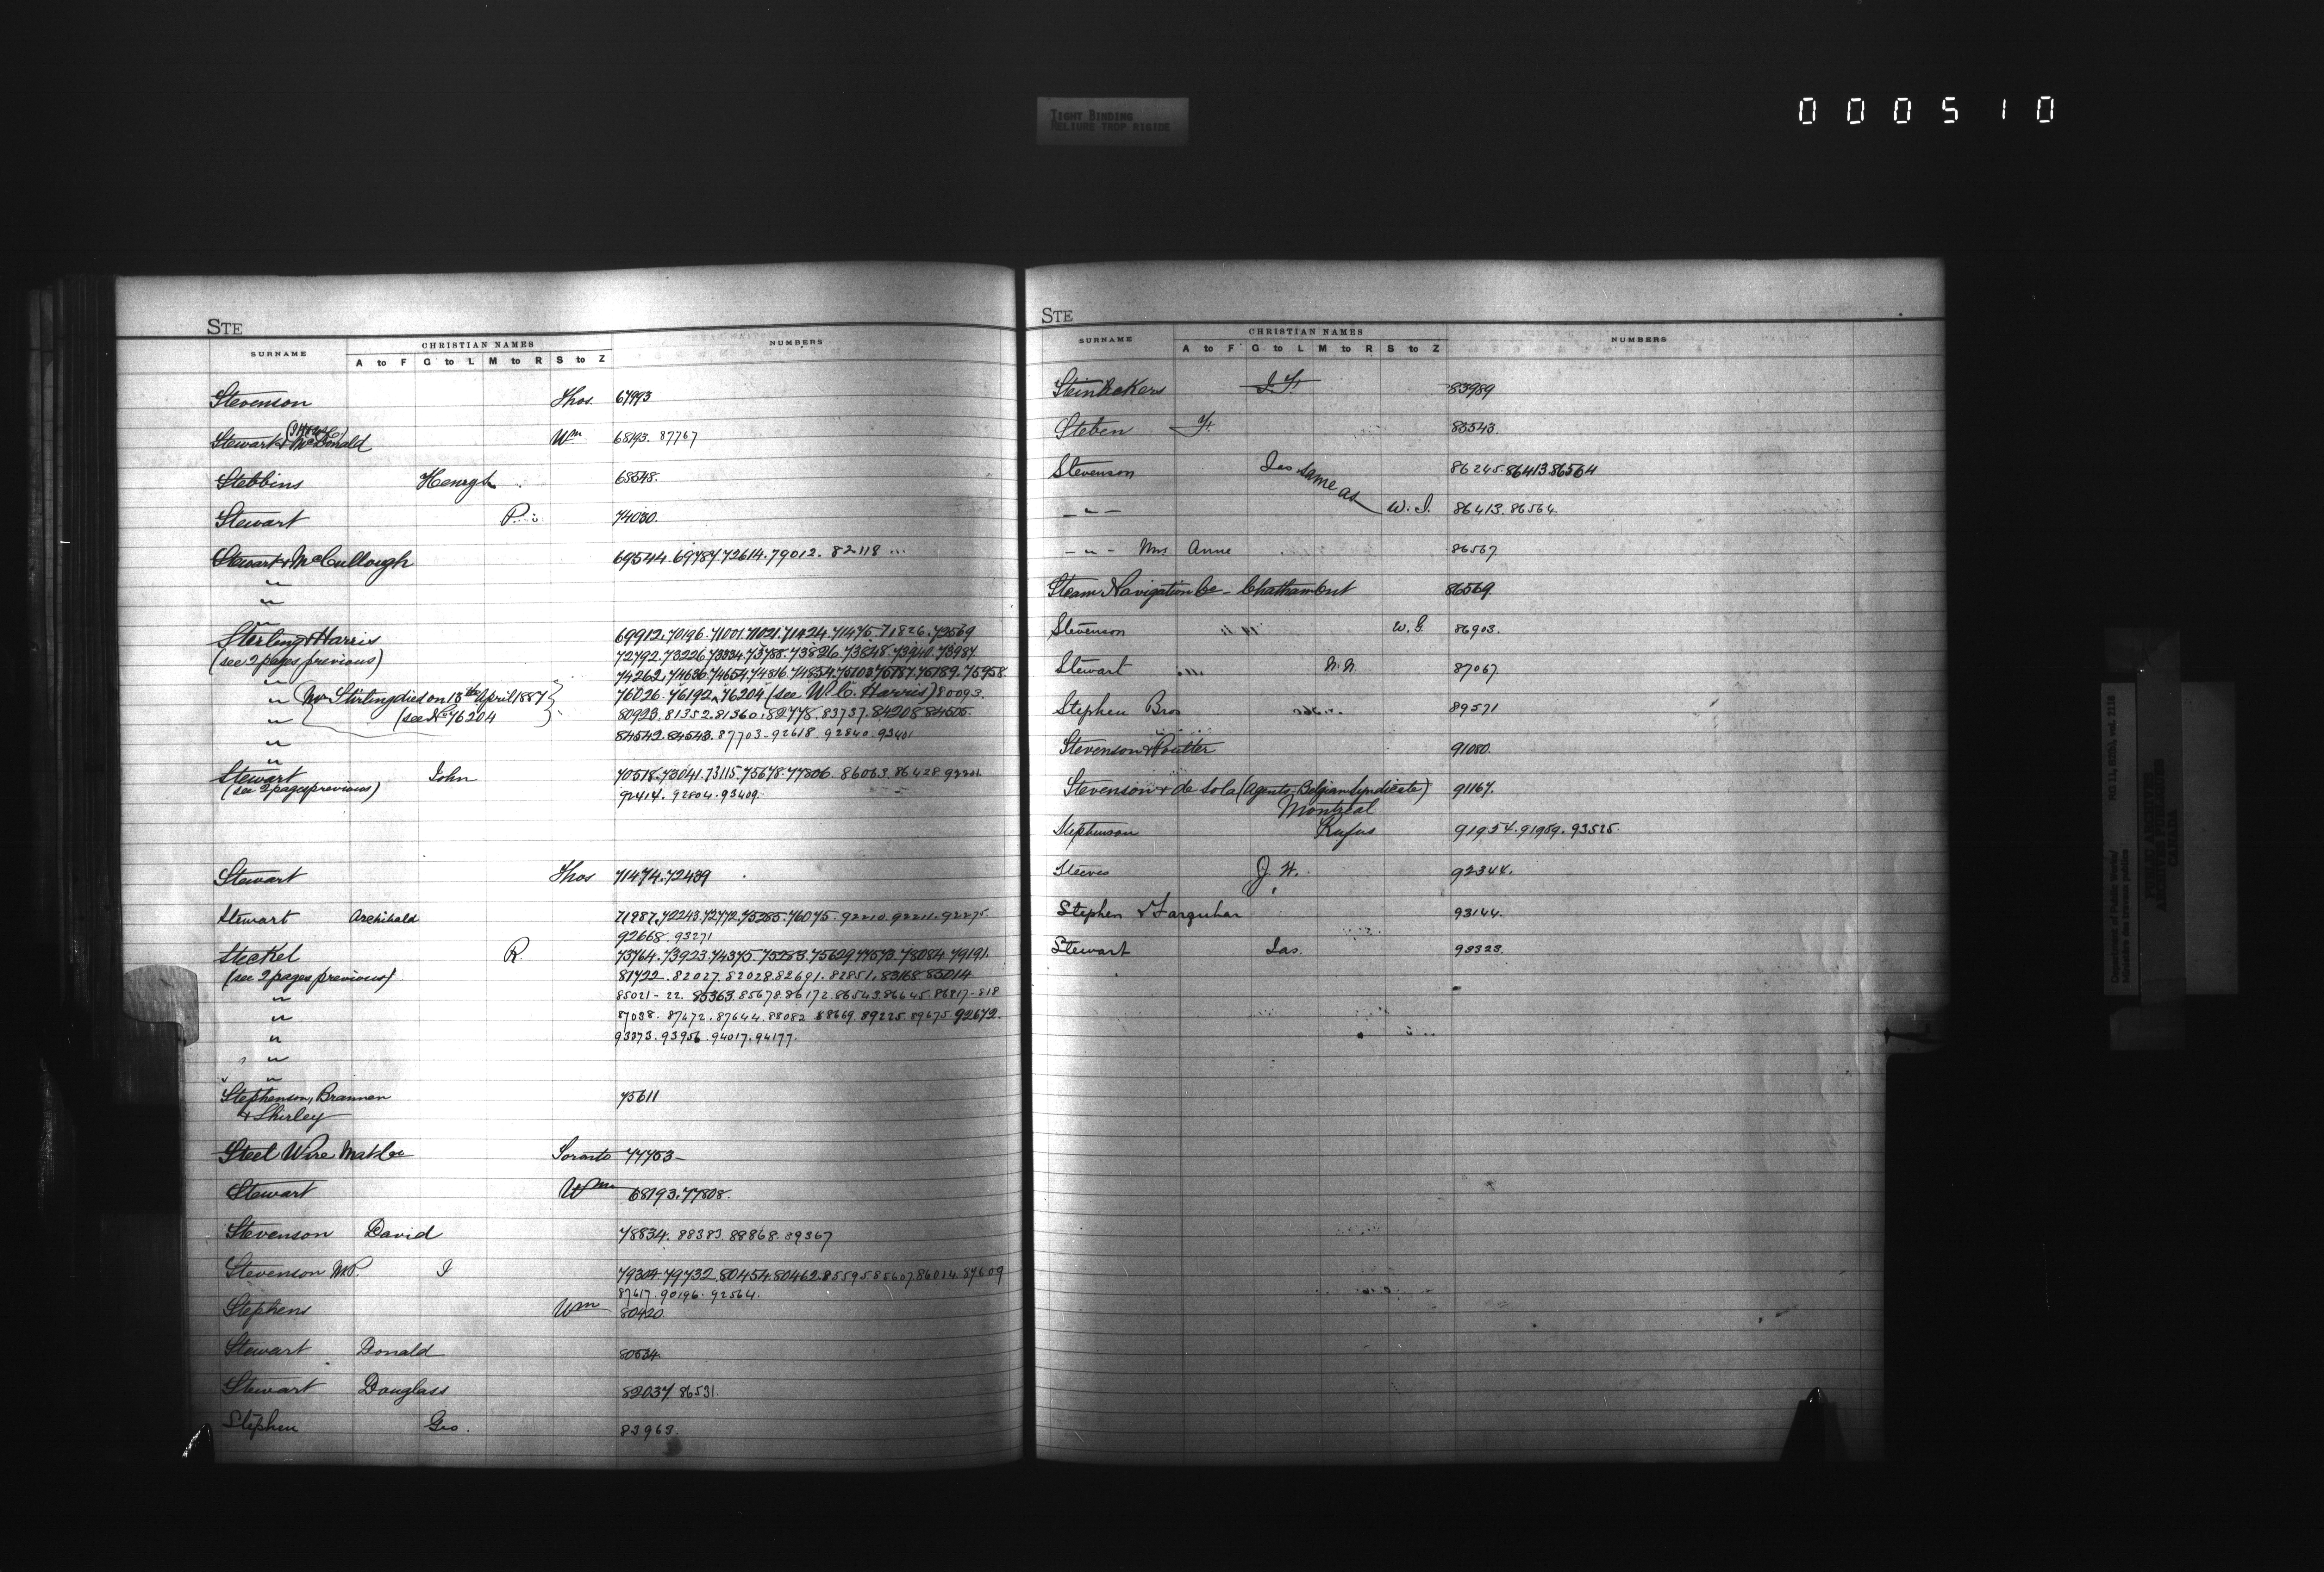 000510
TIGHT BINDING
RELIURE TROP RIGIDE
STE
SURNAME CHRISTIAN NAMES NUMBERS
A to F G to L M to R S to Z
Stevenson Thos. 67993
Stewart & McDonald Wm 68193. 87767
Stebbins Henry 68548.
Stewart P. 74030.
Stewart & McCullough 69544. 69787. 72614. 79012. 82118
"
"
"
Sterling & Harris 69912. 70196. 71001. 71021. 71424. 71475. 71826. 72569
(see 2 pages previous) 72792. 73226. 73334. 73788. 73826. 73848. 73940. 73987
" 74262. 74626. 74654. 74816. 74854. 75103. 75187. 75189. 75958
" (Mr Stirling died on 13th April 1887 76026. 76192. 76204 (see W. C. Harris) 80093.
" (see No 76204 80923. 81352. 81360. 82778. 83737. 84208. 84505.
" 84542. 84543. 87703 - 92618. 92840. 93401
"
Stewart John 70518. 73041. 73115. 75678. 77806. 86063. 86428.
(see 2 pages previous) 92414. 92804. 93409.
Stewart Thos 71474. 72439
Stewart Archibald 71987. 72243. 72772. 75285. 76075. 92210. 92211. 92275
92668. 93271
Steckel R. 73764. 73923. 74375. 75283. 75629. 77573. 78084. 79191.
(see 2 pages previous) 81722. 82027. 82028. 82691. 82851. 83168. 85014
" 85021-22. 85363. 85678. 86172. 86543. 86645. 86817-818
" 87038. 87672. 87644. 88082. 88669. 89225. 89675. 92672.
" 93373. 93956. 94017. 94177.
"
"
Stephenson, Brannen 75611
& Shirley
Steel Wire Mat Co Toronto 77753-
Stewart Wm 68193. 77808.
Stevenson David 78834. 88383. 88868. 89367
Stevenson M.P. J 79304. 79732. 80454. 80462. 85595. 85607. 86014. 87609
87617. 90196. 92564.
Stephens Wm 80420
Stewart Donald 80534.
Stewart Douglass 82037 86531.
Stephen Geo. 83963.
STE
SURNAME CHRISTIAN NAMES NUMBERS
A to F G to L M to R S to Z
J. F. 83989
Steben F. 85543.
Stevenson Jas same as 86245. 86413. 86564
- " - W. J. 86413. 86564.
- " - Mrs Anne 86567
Steam Navigation Co - Chatham Ont 86569
Stevenson W. G. 86903.
Stewart 87067.
Stephen Bros 89571
Stevenson & Poutter 91080.
Stevenson & de Sola (Agents Belgian Syndicate) 91167.
Montreal
Stephenson Rufus 91954. 91959. 93525.
Steeves J. W. 92344.
Stephen & Farquhar 93144.
Stewart Jas. 93323.
Department of Public works/
Ministère des travaux publics
RG 11, vol. 2118
PUBLIC ARCHIVES
ARCHIVES PUBLIQUES
CANADA